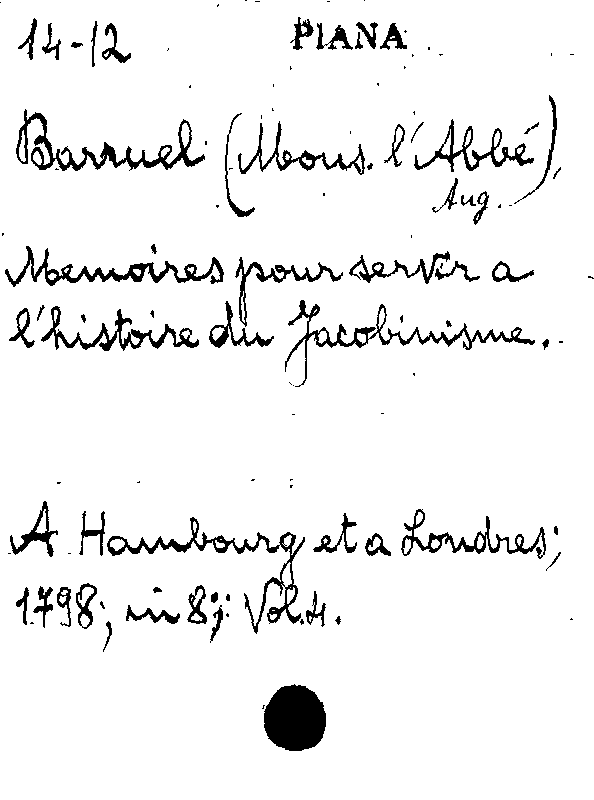 14-12 PIANA
Barruel (Mons. l'Abbé),
Aug.
Memoires pour servir a
l'histoire du Jacobinisme.
A Hambourg et a Londres;
1798; in 8; Vol. 4.